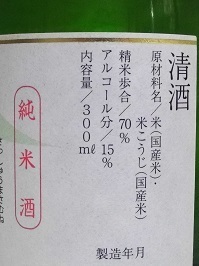 清酒
原材料名／米（国産米）・
米こうじ（国産米）
精米歩合／70％
アルコール分／15％
内容量／300mℓ
製造年月
純米酒